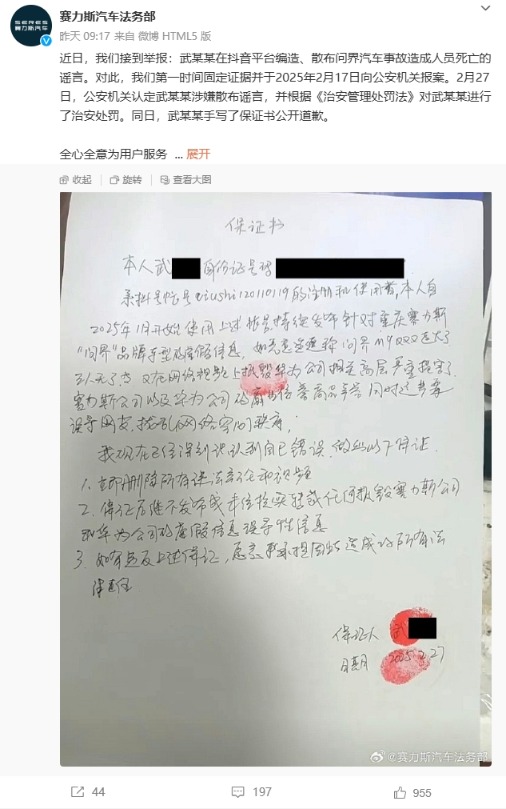 赛力斯汽车法务部
昨天 09:17 来自 微博 HTML5 版
近日，我们接到举报：武某某在抖音平台编造、散布问界汽车事故造成人员死亡的
谣言。对此，我们第一时间固定证据并于2025年2月17日向公安机关报案。2月27
日，公安机关认定武某某涉嫌散布谣言，并根据《治安管理处罚法》对武某某进行
了治安处罚。同日，武某某手写了保证书公开道歉。
全心全意为用户服务 ... 展开
收起 旋转 查看大图
保证书
本人武 身份证号码
系抖音账号 的注册和使用者,本人自
2025年1月开始使用上述账号持续发布针对重庆赛力斯
“问界”品牌车型的虚假信息,
误导网友,扰乱网络空间秩序,
我现在已经深刻认识到自己错误,做出以下保证
1. 立即删除所有违法言论和视频
2. 保证后继不发布或未经核实 诋毁赛力斯公司
和华为公司的虚假信息误导性信息
3. 如有违反上述保证,愿意承担因此造成的所有法
律责任
保证人 武
日期 2025.2.27
@赛力斯汽车法务部
44 197 955